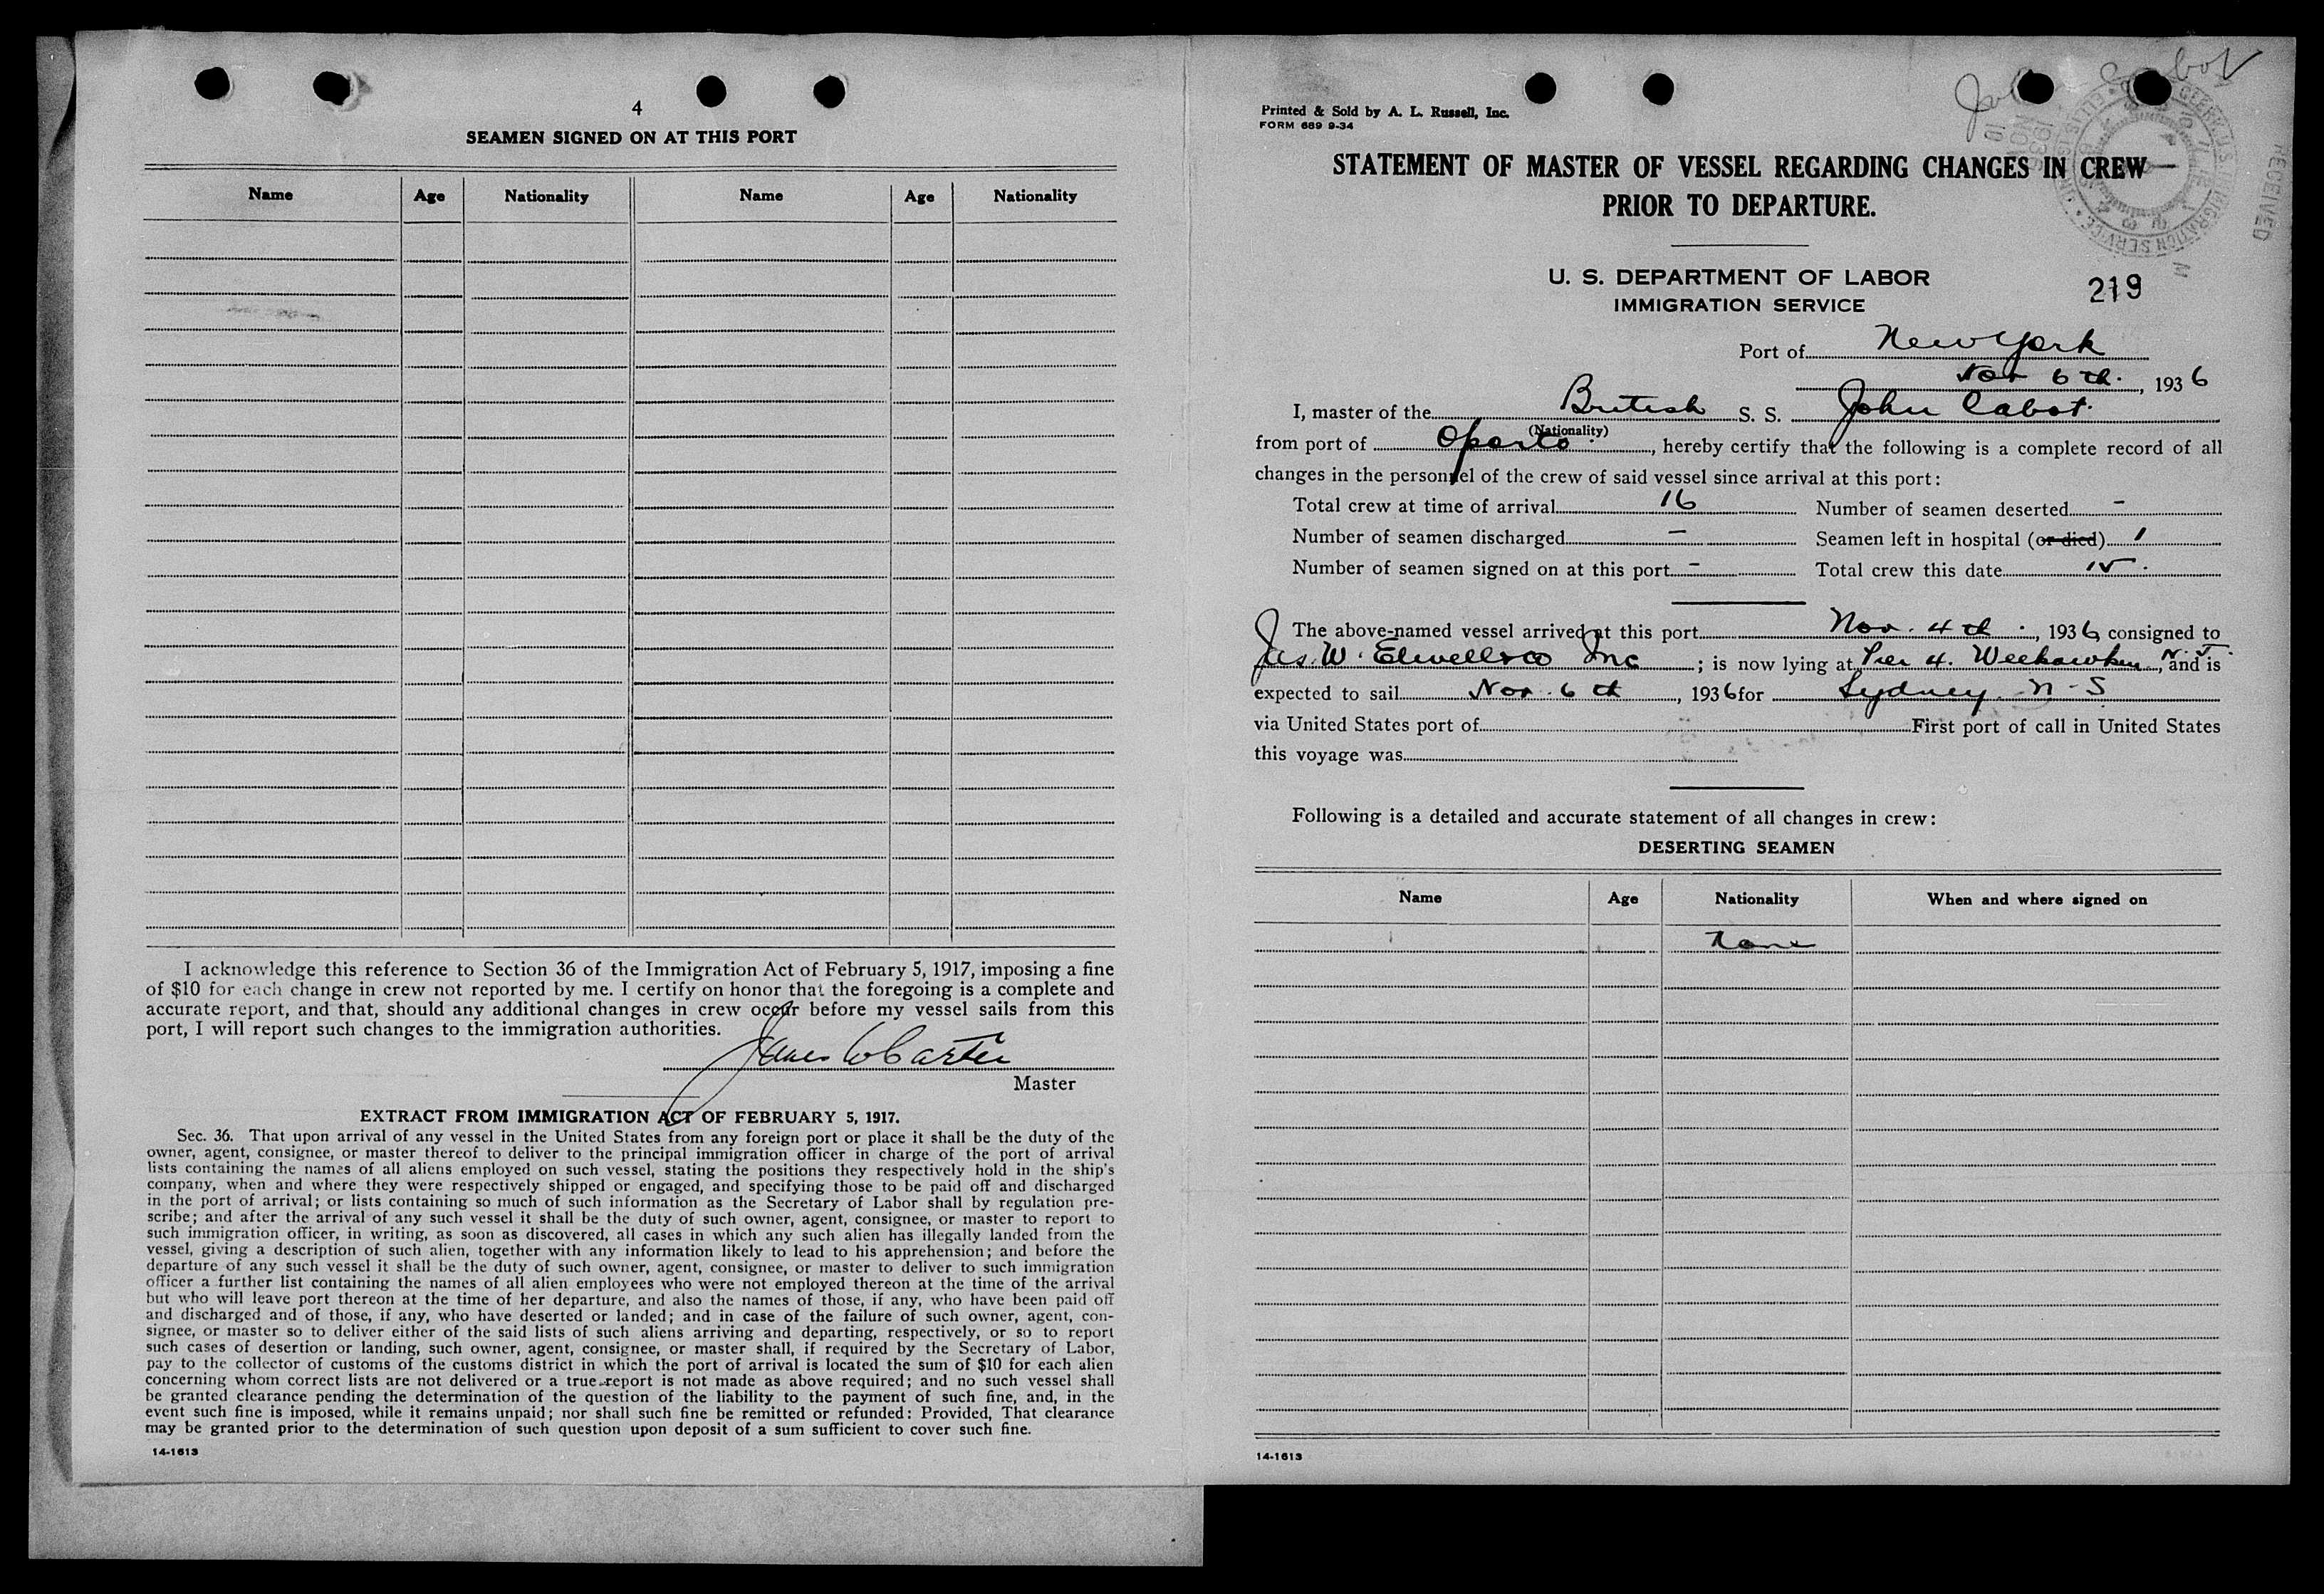 4
SEAMEN SIGNED ON AT THIS PORT
Name Age Nationality Name Age Nationality
I acknowledge this reference to Section 36 of the Immigration Act of February 5, 1917, imposing a fine
of $10 for each change in crew not reported by me. I certify on honor that the foregoing is a complete and
accurate report, and that, should any additional changes in crew occur before my vessel sails from this
port, I will report such changes to the immigration authorities.
James W Carter
Master
EXTRACT FROM IMMIGRATION ACT OF FEBRUARY 5, 1917.
Sec. 36. That upon arrival of any vessel in the United States from any foreign port or place it shall be the duty of the
owner, agent, consignee, or master thereof to deliver to the principal immigration officer in charge of the port of arrival
lists containing the names of all aliens employed on such vessel, stating the positions they respectively hold in the ship's
company, when and where they were respectively shipped or engaged, and specifying those to be paid off and discharged
in the port of arrival; or lists containing so much of such information as the Secretary of Labor shall by regulation pre-
scribe; and after the arrival of any such vessel it shall be the duty of such owner, agent, consignee, or master to report to
such immigration officer, in writing, as soon as discovered, all cases in which any such alien has illegally landed from the
vessel, giving a description of such alien, together with any information likely to lead to his apprehension; and before the
departure of any such vessel it shall be the duty of such owner, agent, consignee, or master to deliver to such immigration
officer a further list containing the names of all alien employees who were not employed thereon at the time of the arrival
but who will leave port thereon at the time of her departure, and also the names of those, if any, who have been paid off
and discharged and of those, if any, who have deserted or landed; and in case of the failure of such owner, agent, con-
signee, or master so to deliver either of the said lists of such aliens arriving and departing, respectively, or so to report
such cases of desertion or landing, such owner, agent, consignee, or master shall, if required by the Secretary of Labor,
pay to the collector of customs of the customs district in which the port of arrival is located the sum of $10 for each alien
concerning whom correct lists are not delivered or a true report is not made as above required; and no such vessel shall
be granted clearance pending the determination of the question of the liability to the payment of such fine, and, in the
event such fine is imposed, while it remains unpaid; nor shall such fine be remitted or refunded: Provided, That clearance
may be granted prior to the determination of such question upon deposit of a sum sufficient to cover such fine.
14-1613
Cabot
Printed & Sold by A. L. Russell, Inc.
FORM 689 9-34
RECEIVED
1936 NOV 10
STATEMENT OF MASTER OF VESSEL REGARDING CHANGES IN CREW
PRIOR TO DEPARTURE.
U. S. DEPARTMENT OF LABOR
IMMIGRATION SERVICE
219
Port of New York
Nov 6th., 1936
I, master of the British S. S. John Cabot.
(Nationality)
from port of Oporto, hereby certify that the following is a complete record of all
changes in the personnel of the crew of said vessel since arrival at this port:
Total crew at time of arrival 16 Number of seamen deserted -
Number of seamen discharged - Seamen left in hospital (or died) 1
Number of seamen signed on at this port - Total crew this date 15.
The above-named vessel arrived at this port Nov. 4th, 1936, consigned to
Jas. W. Elwell & Co Inc; is now lying at Pier 4. Weehawken, N.J. and is
expected to sail Nov. 6th, 1936 for Sydney N-S
via United States port of First port of call in United States
this voyage was
Following is a detailed and accurate statement of all changes in crew:
DESERTING SEAMEN
Name Age Nationality When and where signed on
None
14-1613